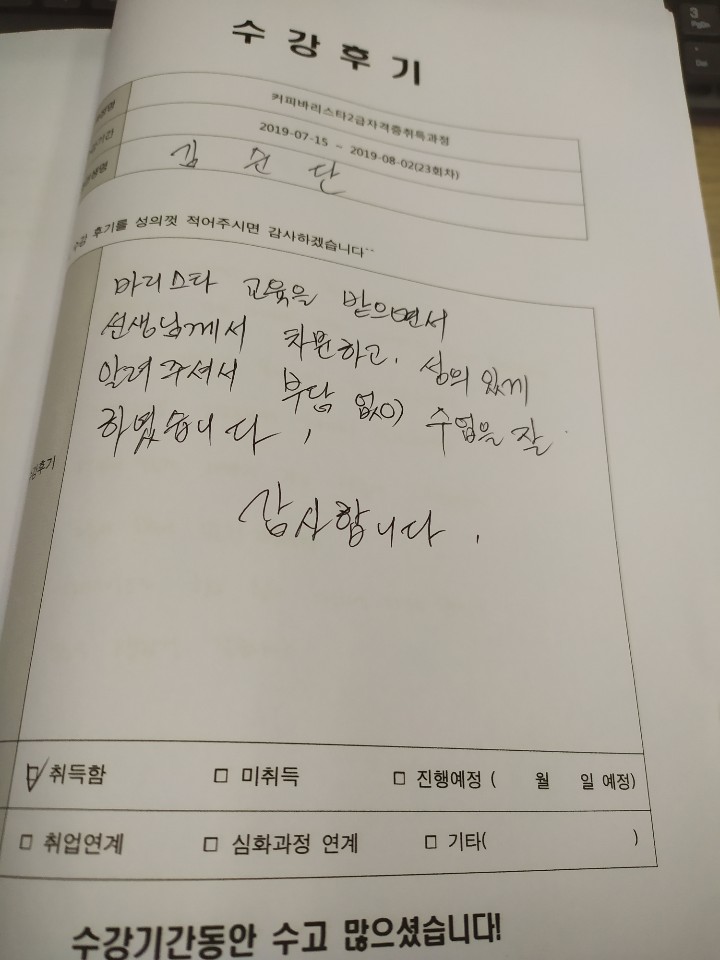 수강후기
커피바리스타2급자격증취득과정
2019-07-15 ~ 2019-08-02(23회차)
김 순 단
수강 후기를 성의껏 적어주시면 감사하겠습니다^^
바리스타 교육을 받으면서
선생님께서 차분하고, 성의 있게
알려 주셔서 부담 없이 수업을 잘
하였습니다,
감사합니다,
취득함 □ 미취득 □ 진행예정 ( 월 일 예정)
□ 취업연계 □ 심화과정 연계 □ 기타( )
수강기간동안 수고 많으셨습니다!